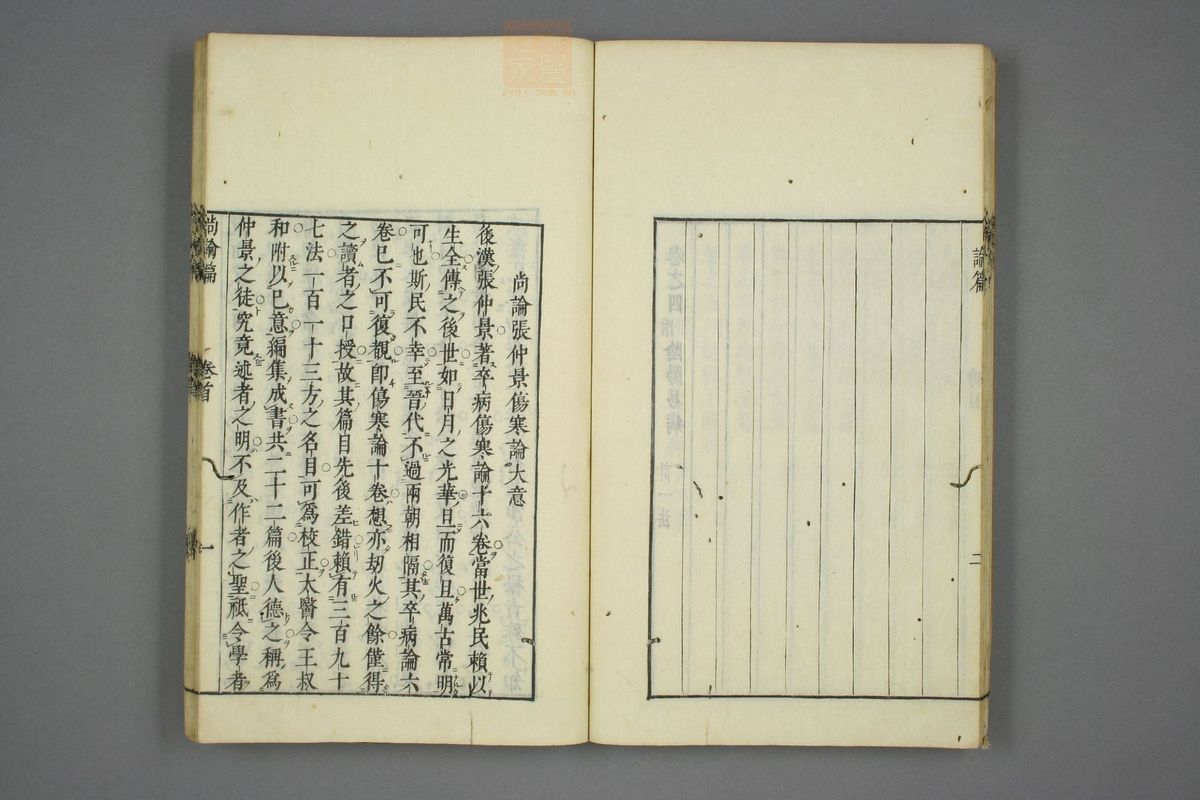 論篇
二
尚論張仲景傷寒論大意
後漢張仲景著卒病傷寒論十六卷當世兆民賴以
生全傳之後世如日月之光華旦而復旦萬古常明
可也斯民不幸至晉代不過兩朝相隔其卒病論六
卷已不可復覩卽傷寒論十卷想亦劫火之餘僅得
之讀者之口授故其篇目先後差錯賴有三百九十
七法一百一十三方之名目可爲校正太醫令王叔
和附以已意編集成書共二十二篇後人德之稱爲
仲景之徒究竟述者之明不及作者之聖祗令學者
尚論篇
卷首
一
zysj.com.cn